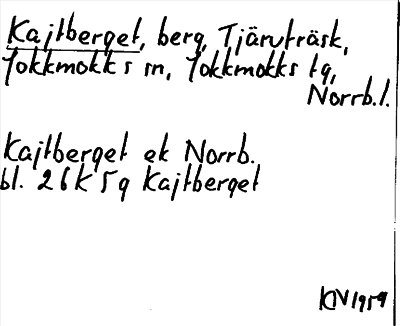 Kajtberget, berg, Tjäruträsk,
Jokkmokks sn, Jokkmokks tg,
Norrb.l.
Kajtberget ek Norrb.
bl. 26K 5g Kajtberget
KV 1959